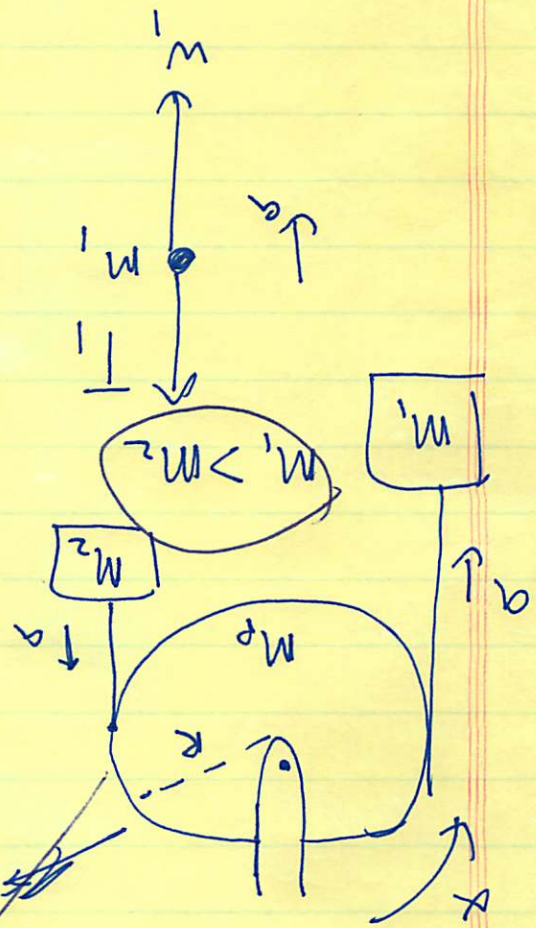 α
R
a
Mp
a
m₂
m₁
m₁ > m₂
T₁
m₁
a
W₁